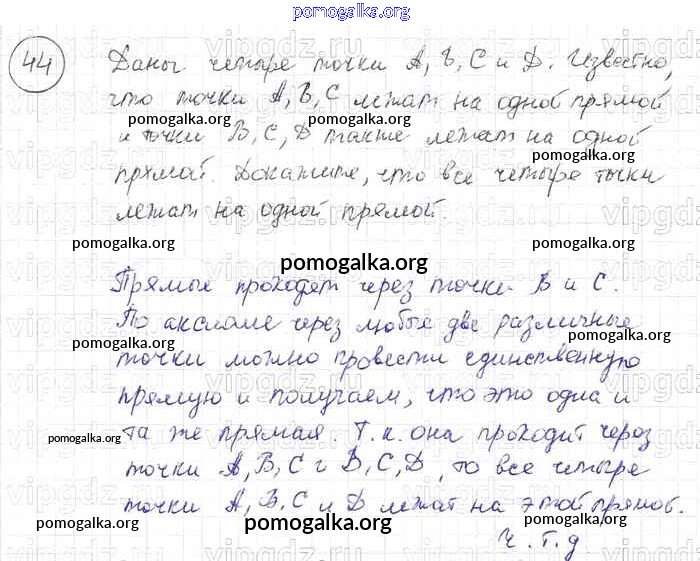 pomogalka.org
44 Даны четыре точки А, В, С и D. Известно,
что точки А, В, С лежат на одной прямой
и точки В, С, D также лежат на одной
прямой. Докажите, что все четыре точки
лежат на одной прямой.
Прямые проходят через точки В и С.
По аксиоме через любые две различные
точки можно провести единственную
прямую и получаем, что это одна и
та же прямая. Т.к. она проходит через
точки А, В, С и В, С, D, то все четыре
точки А, В, С и D лежат на этой прямой.
ч.т.д.
pomogalka.org
pomogalka.org
pomogalka.org
pomogalka.org
pomogalka.org
pomogalka.org
pomogalka.org
pomogalka.org
pomogalka.org
pomogalka.org
pomogalka.org
pomogalka.org
pomogalka.org